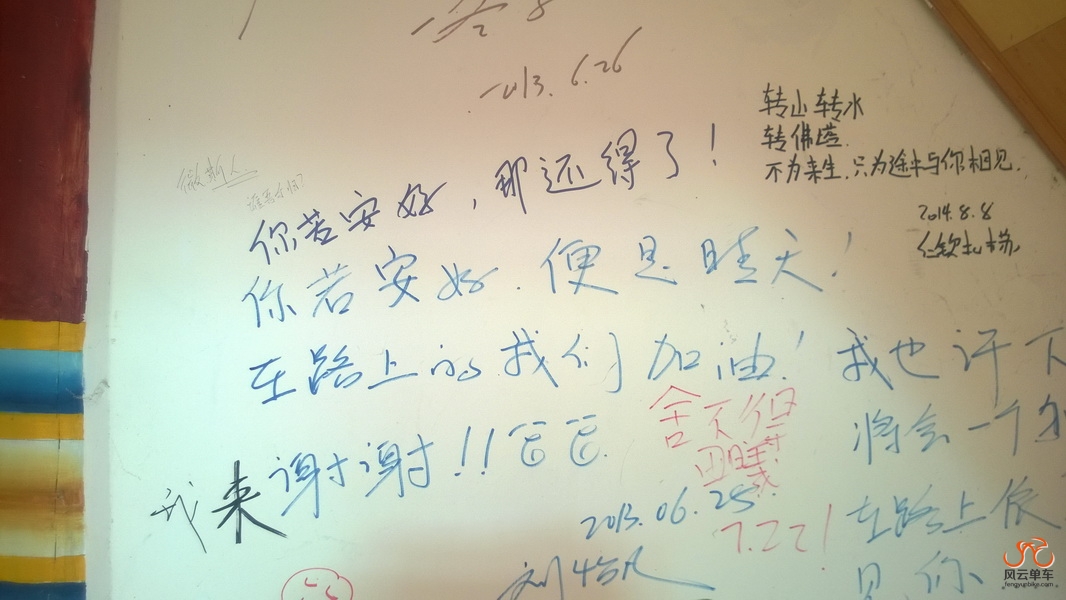 2013.6.26
转山转水
转佛塔
不为来生,只为途中与你相见.
2014.8.8
你若安好,那还得了!
你若安好.便是晴天!
在路上的我们加油!
我也许下
将会一个
在路上
见你
谢谢!!
舍不得
2013.06.25
7.22!
我来
风云单车
fengyunbike.com